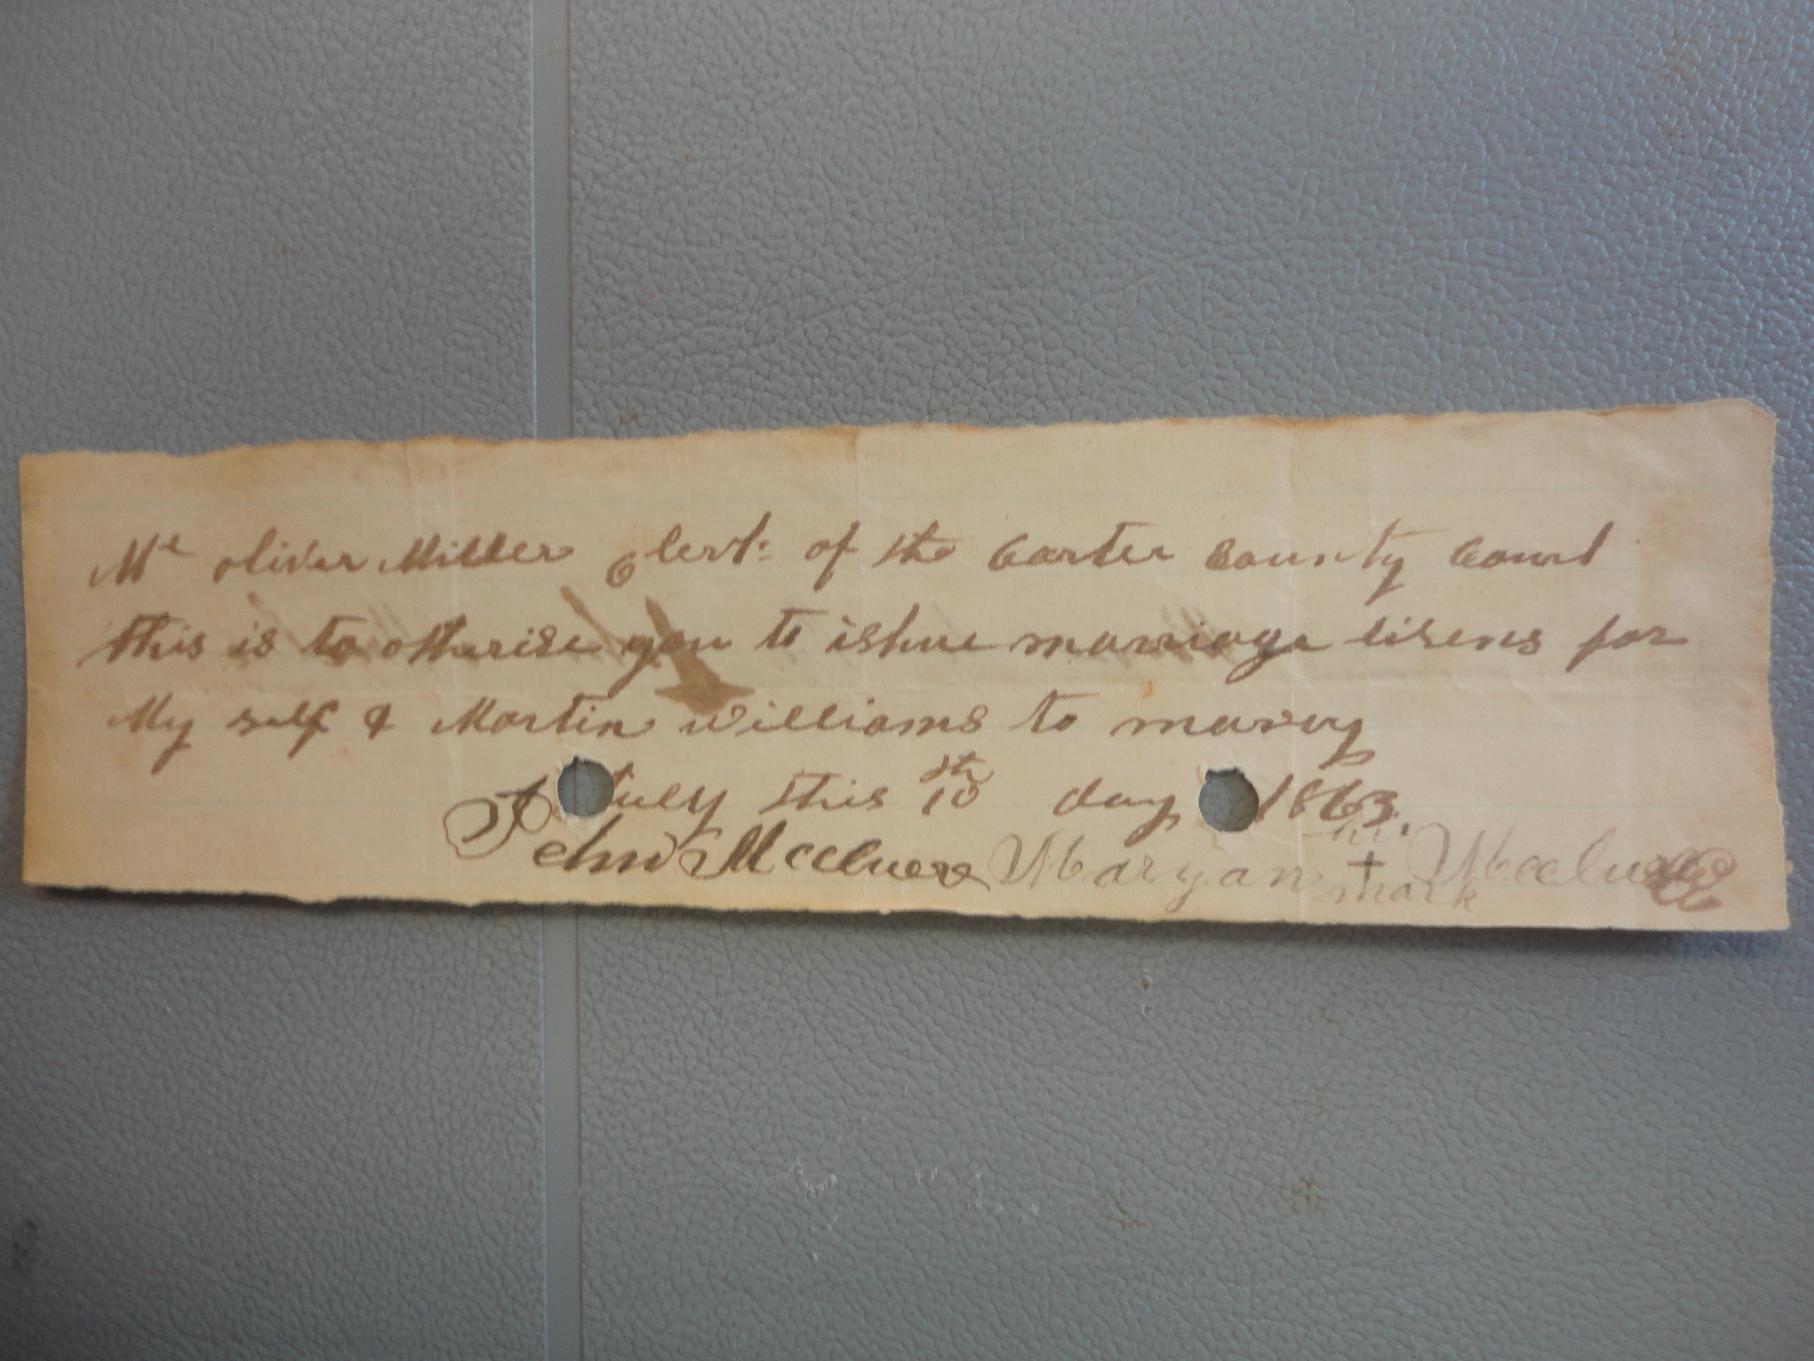 Mr oliver Miller Clerk of the Carter County Court
this is to otherise you to ishue marriage lisens for
My self & Martin williams to marry
July this 10th day 1863.
John Mcclure Maryan his + mark Mcclure